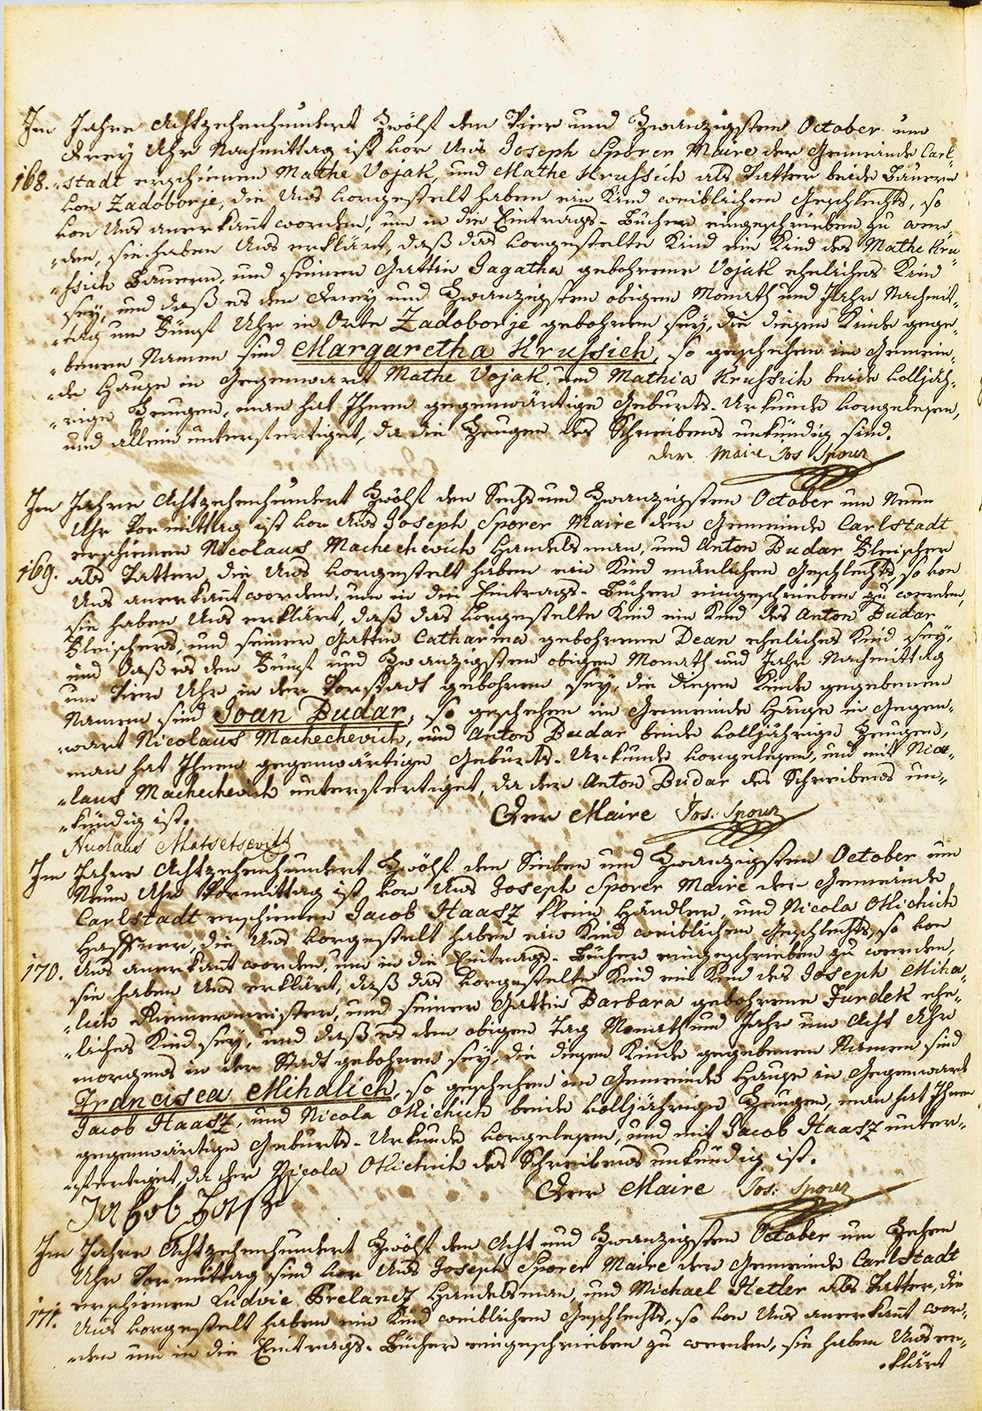 Im Jahre Achtzehenhundert Zwölf den Vier und Zwanzigsten October um
Drey Uhr Nachmittag ist vor Uns Joseph Sporer Maire der Gemeinde Carl-
168. „stadt erschienen Mathe Vojak, und Mathe Krussich als Vatter beide Bauern
von Zadoborje, die Uns vorgestelt haben ein Kind weiblichen Geschlechts, so
von Uns anerkant worden, um in die Eintrags-Bücher eingeschrieben zu wer-
„den, sie haben Uns erklärt, daß das vorgestelte Kind ein Kind des Mathe Kru-
„ssich Bauern, und seiner Gattin Jagatha gebohrene Vojak eheliches Kind
sey, und daß es den Drey und Zwanzigsten obigen Monath und Jahr Nachmit-
„tag um Fünf Uhr in Orte Zadoborje gebohren sey, die diesem Kinde gege-
„benen Namen sind Margaretha Krussich, so geschehen im Gemein-
„de Hause in Gegenwart Mathe Vojak, und Mathia Krussich beide volljäh-
„rige Zeugen, man hat Ihnen gegenwärtige Geburts-Urkunde vorgelesen,
und allein unterfertiget, da die Zeugen des Schreibens unkündig sind.
der Maire Jos Sporer
Im Jahre Achtzehenhundert Zwölf den Sechs und Zwanzigsten October um Neun
Uhr Vormittag ist vor Uns Joseph Sporer Maire der Gemeinde Carlstadt
erschienen Nicolaus Machechevich Handelsman, und Anton Budar Fleischer
169. als Vatter, die Uns vorgestelt haben ein Kind mänlichen Geschlechts, so von
Uns anerkant worden, um in die Eintrags-Bücher eingeschrieben zu werden,
sie haben Uns erklärt, daß das vorgestelte Kind ein Kind des Anton Budar
Fleischers, und seiner Gattin Catharina gebohrene Dean eheliches Kind sey,
und daß es den Fünf und Zwanzigsten obigen Monath und Jahr Nachmittag
um Vier Uhr in der Vorstadt gebohren sey, die diesem Kinde gegebenen
Namen sind Joan Budar, so geschehen im Gemeinde Hause in Gegen-
„wart Nicolaus Machechevich, und Anton Budar beide volljährige Zeugen,
man hat Ihnen gegenwärtige Geburts-Urkunde vorgelesen, und mit Nico-
„laus Machechevich unterfertiget, da der Anton Budar des Schreibens un-
„kündig ist.
Der Maire Jos: Sporer
Nicolaus Matsetsevitz
Im Jahre Achtzehenhundert Zwölf den Sieben und Zwanzigsten October um
Neun Uhr Vormittag ist vor Uns Joseph Sporer Maire der Gemeinde
Carlstadt erschienen Jacob Haasz klein Händler, und Nicola Okichich
Haffner, die Uns vorgestelt haben ein Kind weiblichen Geschlechts, so von
170. Uns anerkant worden, um in die Eintrags-Bücher eingeschrieben zu werden,
sie haben Uns erklärt, daß das vorgestelte Kind ein Kind des Joseph Miha-
„lich Riemermeister, und seiner Gattin Barbara gebohrene Jurdek ehe-
„liches Kind sey, und daß es den obigen Tag Monath und Jahr um Acht Uhr
morgens in der Stadt gebohren sey, die diesem Kinde gegebenen Namen sind
Francisca Mihalich, so geschehen im Gemeinde Hause in Gegenwart
Jacob Haasz, und Nicola Okichich beide volljährige Zeugen, man hat Ihnen
gegenwärtige Geburts-Urkunde vorgelesen, und mit Jacob Haasz unter-
„fertiget, da der Nicola Okichich des Schreibens unkündig ist.
Der Maire Jos: Sporer
Jakob
Im Jahre Achtzehenhundert Zwölf den Acht und Zwanzigsten October um Zehen
Uhr Vormittag sind vor Uns Joseph Sporer Maire der Gemeinde Carlstadt
erschienen Ludvic Handelsman, und Michael Hetler als Vatter, die
171. Uns vorgestelt haben ein Kind weiblichen Geschlechts, so von Uns anerkant wor-
„den um in die Eintrags-Bücher eingeschrieben zu werden, sie haben Uns er-
„klärt